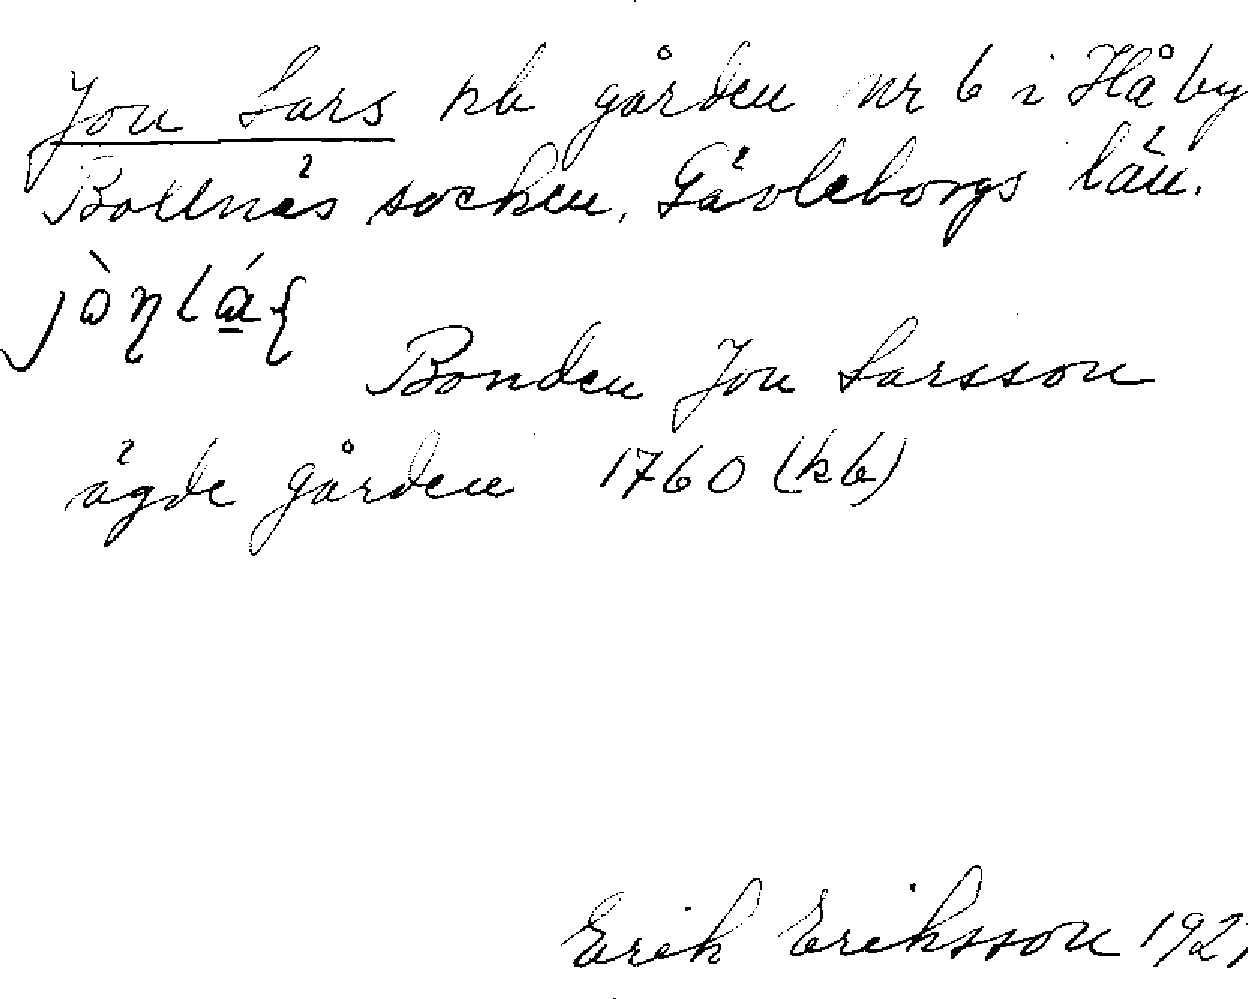 Jon Lars på gården nr 6 i Håby
Bollnäs socken, Gävleborgs län.
Bonden Jon Larsson
ägde gården 1760 (kb)
Erik Eriksson